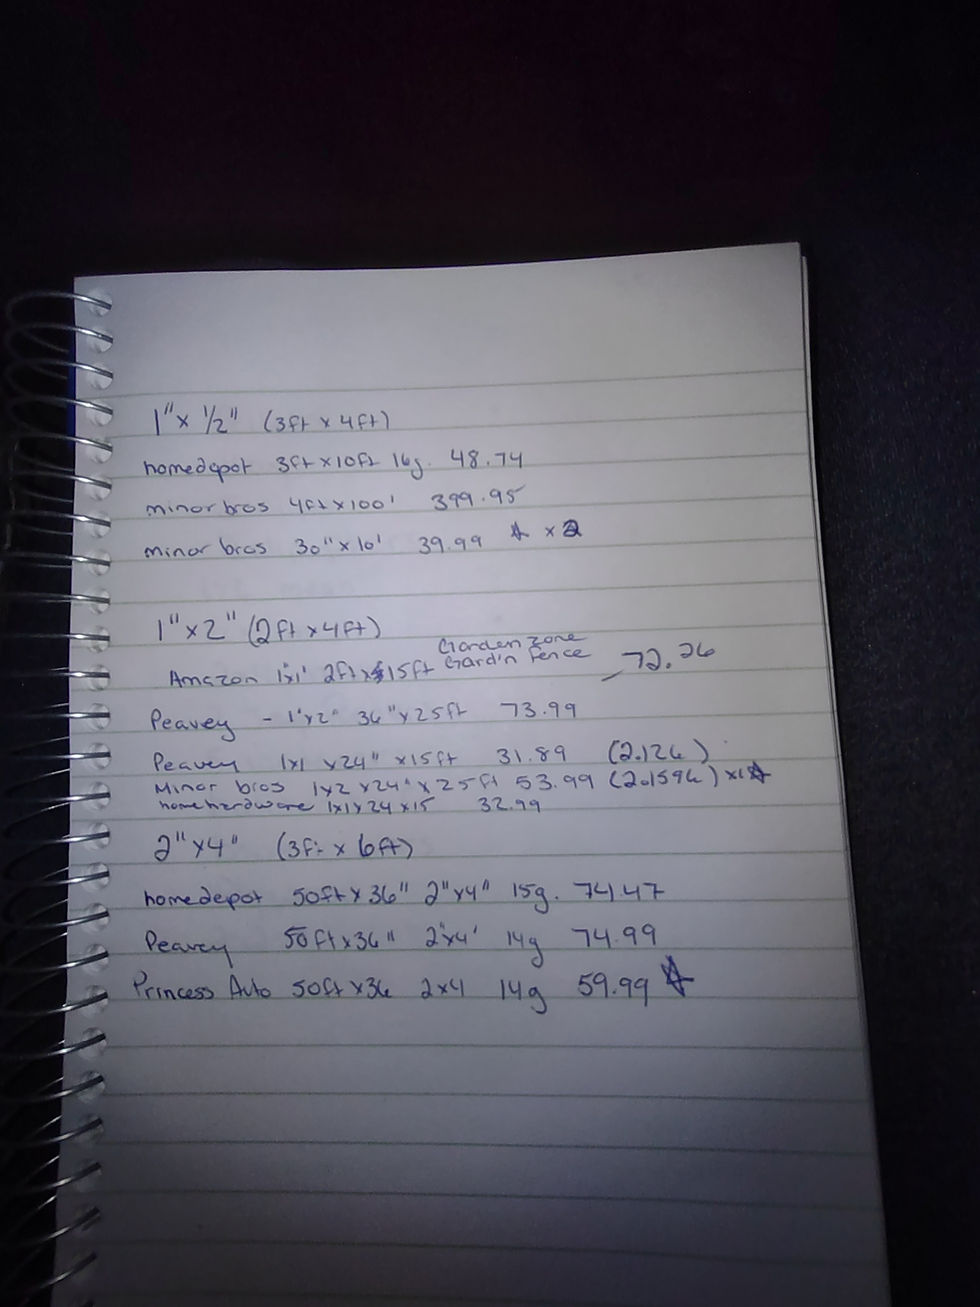 1" x 1/2" (3ft x 4ft)
homedepot 3ft x 10ft 16g. 48.74
minor bros 4ft x 100' 399.95
minor bros 30" x 10' 39.99 ☆ x 2
1" x 2" (2ft x 4ft)
Garden zone
Amazon 1x1' 2ft x 15ft Gard'n Fence 72.26
Peavey - 1"x2" 36" x 25ft 73.99
Peavey 1x1 x 24" x 15ft 31.89 (2.126)
Minor bros 1x2 x 24" x 25ft 53.99 (2.1596) x1 ☆
homehardware 1x1 x 24 x 15 32.99
2" x 4" (3ft x 6ft)
homedepot 50ft x 36" 2"x4" 15g. 74.47
Peavey 50ft x 36" 2"x4' 14g 74.99
Princess Auto 50ft x 36 2x4 14g 59.99 ☆